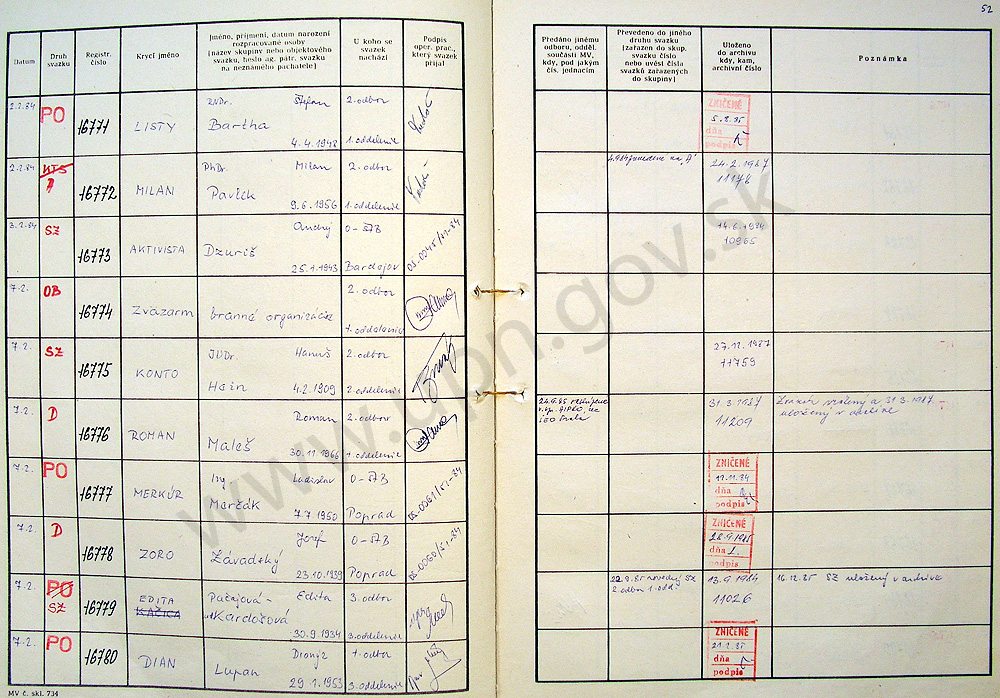 52
Datum
Druh svazku
Registr. číslo
Krycí jméno
Jméno, příjmení, datum narození rozpracované osoby (název skupiny nebo objektového svazku, heslo ag. pátr. svazku na neznámého pachatele)
U koho se svazek nachází
Podpis oper. prac., který svazek přijal
Předáno jinému odboru, odděl. součásti MV, kdy, pod jakým čís. jednacím
Převedeno do jiného druhu svazku (zařazen do skup. svazku číslo nebo uvést čísla svazků zařazených do skupiny)
Uloženo do archivu kdy, kam, archivní číslo
Poznámka
2.2.84 PO 16771 LISTY RNDr. Štefan 2. odbor
Bartha
4.4.1948 1. oddelenie
ZNIČENÉ
dňa
podpis
2.2.84 A 16772 MILAN PhDr. Milan 2. odbor
Pavlík
9.6.1956 1. oddelenie
24.2.1987
11178
3.2.84 SZ 16773 AKTIVISTA Ondrej O-ŠTB
Dzuriš
25.1.1943 Bardejov
14.6.1984
10965
7.2. OB 16774 Zväzarm branná organizácia 2. odbor
1. oddelenie
7.2. SZ 16775 KONTO JUDr. Hanuš 2. odbor
Hain
4.2.1909 2. oddelenie
27.12.1987
11759
7.2. D 16776 ROMAN Roman 2. odbor
Maleš
30.11.1966 1. oddelenie
31.3.1987
11209
Zväzok zrušený a 31.3.1987
uložený v archíve
7.2. PO 16777 MERKÚR Ing. Ladislav O-ŠTB
Merčák
7.7.1950 Poprad
OS-0061/S1-84
ZNIČENÉ
12.11.84
dňa
podpis
7.2. D 16778 ZORO Jozef O-ŠTB
Závadský
23.10.1939 Poprad
OS-0060/S1-84
ZNIČENÉ
28.9.1985
dňa
podpis
7.2. PO SZ 16779 EDITA KAČICA Pučajová- Edita 3. odbor
Kardošová
30.9.1934 3. oddelenie
2. odbor 1. odd.
13.9.1984
11026
16.12.85 SZ uložený v archíve
7.2. PO 16780 DIAN Dionýz 1. odbor
Lupan
29.1.1953 3. oddelenie
ZNIČENÉ
dňa
podpis
MV č. skl. 734
www.upn.gov.sk